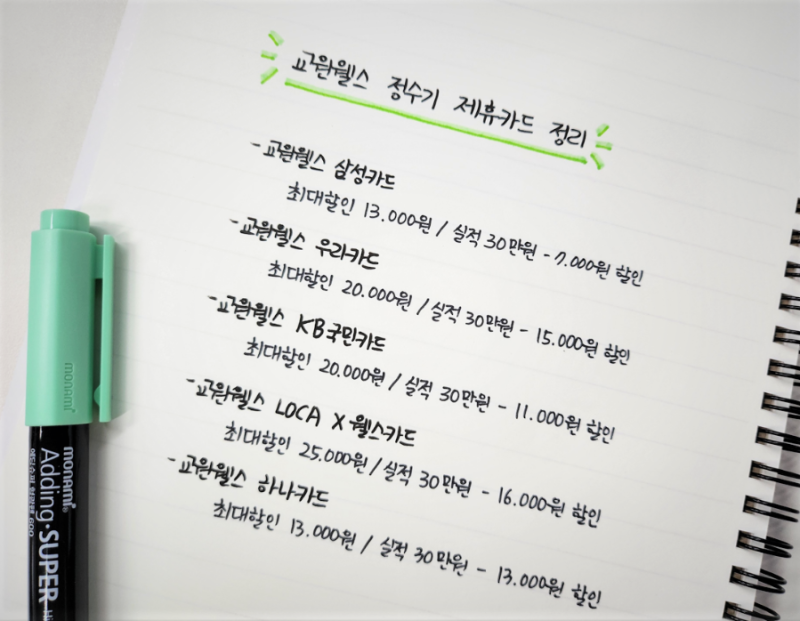 교원웰스 정수기 제휴카드 정리
- 교원웰스 삼성카드
최대할인 13.000원 / 실적 30만원 - 7.000원 할인
- 교원웰스 우리카드
최대할인 20.000원 / 실적 30만원 - 15.000원 할인
- 교원웰스 KB국민카드
최대할인 20.000원 / 실적 30만원 - 11.000원 할인
- 교원웰스 LOCA X 웰스카드
최대할인 25.000원 / 실적 30만원 - 16.000원 할인
- 교원웰스 하나카드
최대할인 13.000원 / 실적 30만원 - 13.000원 할인
monami
monami
Adding·SUPER